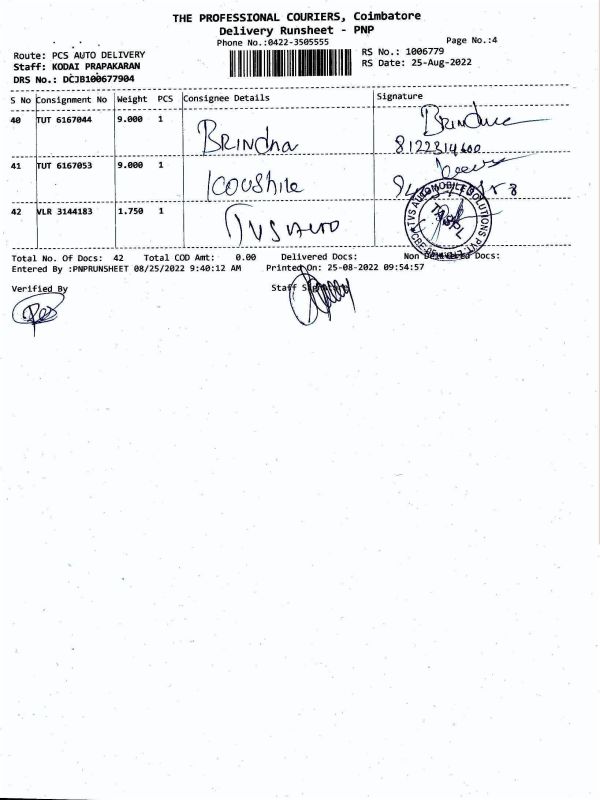 THE PROFESSIONAL COURIERS, Coimbatore
Delivery Runsheet - PNP
Phone No.:0422-3505555
Page No.:4
Route: PCS AUTO DELIVERY
RS No.: 1006779
Staff: KODAI PRAPAKARAN
RS Date: 25-Aug-2022
DRS No.: DCJB100677904
S No Consignment No Weight PCS Consignee Details Signature
40 TUT 6167044 9.000 1 Brindha
8122314600
41 TUT 6167053 9.000 1
42 VLR 3144183 1.750 1 TVS Auto
TVS AUTOMOBILE SOLUTIONS PVT. LTD.
TASPL
Total No. Of Docs: 42 Total COD Amt: 0.00 Delivered Docs: Non Delivered Docs:
Entered By :PNPRUNSHEET 08/25/2022 9:40:12 AM Printed On: 25-08-2022 09:54:57
Verified By Staff Signature